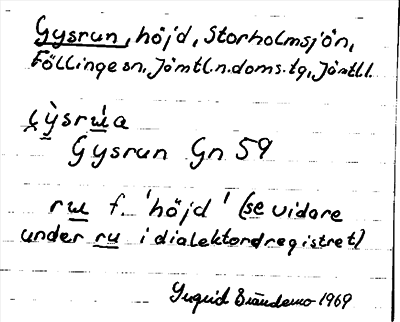 Gysrun, höjd, Storholmsjön,
Föllinge sn, Jämtl.n.doms.tg, Jämtl l.
Gysrun Gn 59
ru f. 'höjd' (se vidare
under ru i dialektordregistret)
Ingrid 1969